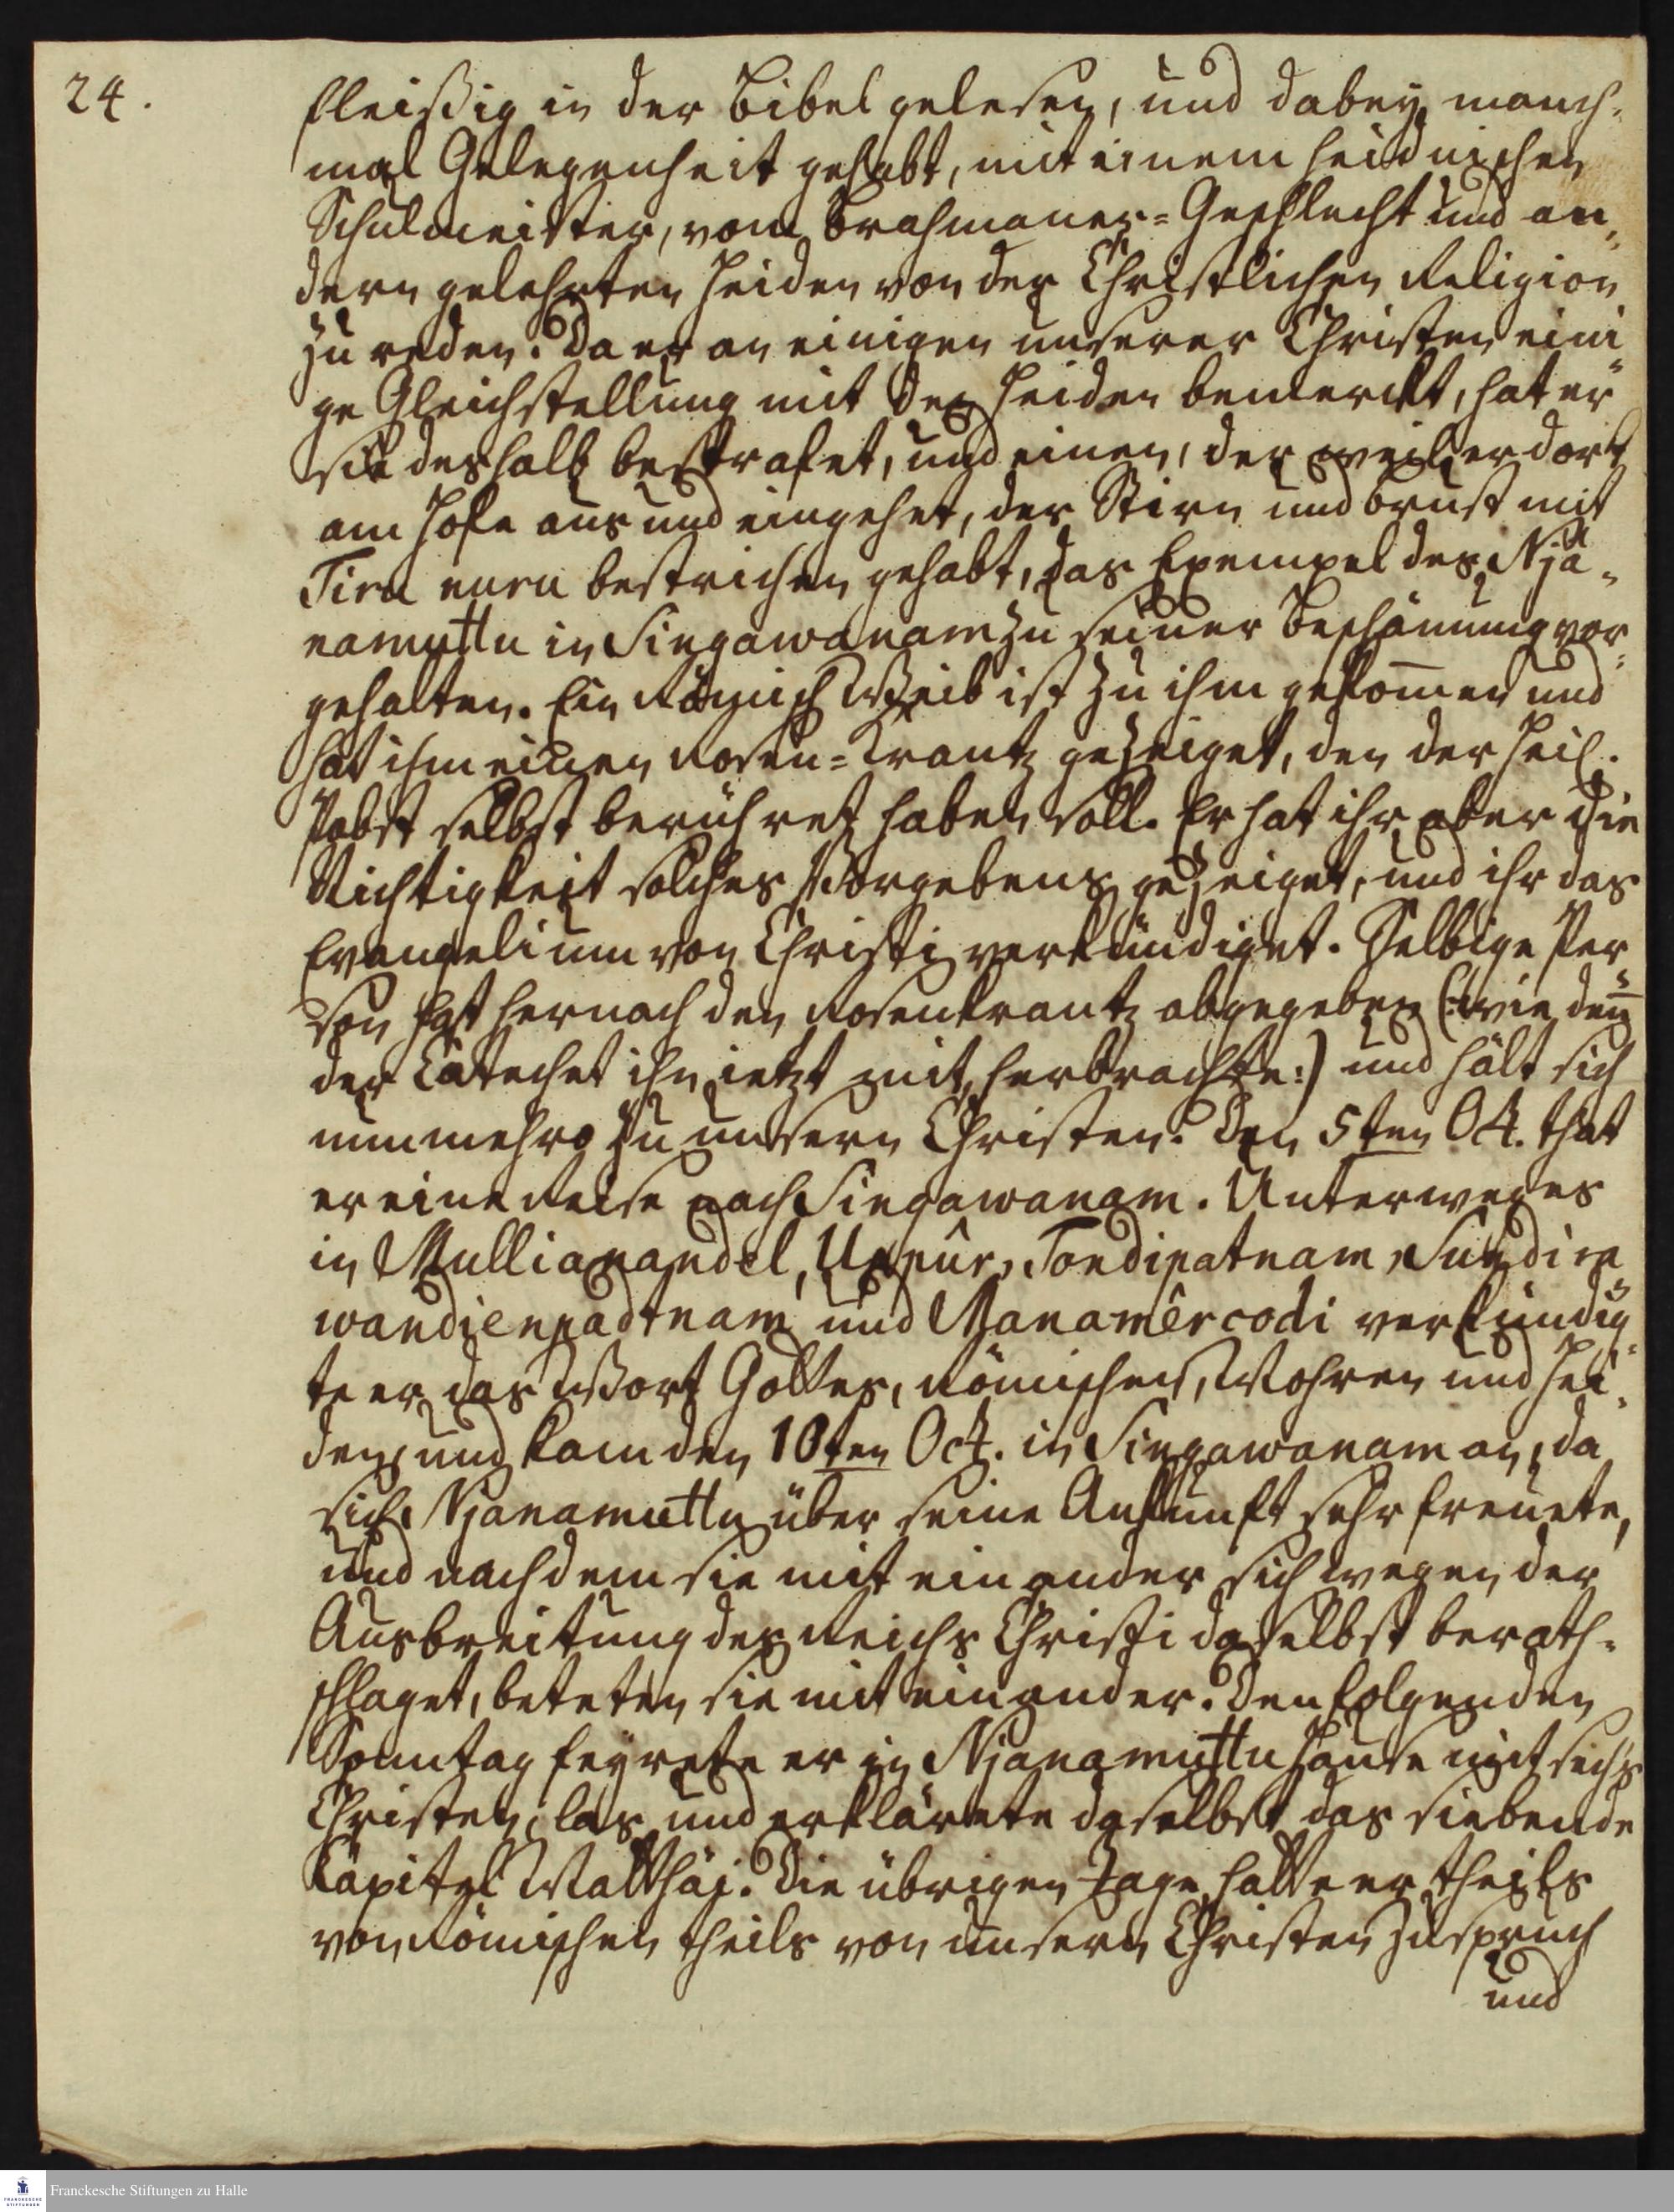 24.
fleißig in der Bibel gelesen, und dabey manch-
mal Gelegenheit gehabt, mit einem heidnischen
Schulmeister, vom Brahmaner-Geschlecht und an-
dern gelehrten Heiden von der Christlichen Religion
zu reden. Da er an einigen unserer Christen eini
ge Gleichstellung mit den Heiden bemerckt, hat er
sie deshalb bestrafet, und einen, der weil er dort
am Hofe aus und eingehet, der Stirn und Brust mit
Tiru nuru bestrichen gehabt, das Exempel des Njâ-
namuttu in Singawanam zu seiner Beschämung vor-
gehalten. Ein Römisch Weib ist zu ihm gekom̅en und
hat ihm einen Rosen-Krantz gezeiget, den der Heil.
Pabst selbst berühret haben soll. Er hat ihr aber die
Nichtigkeit solches Vorgebens gezeiget, und ihr das
Evangelium von Christi verkündiget. Selbige Per
son hat hernach den Rosenkrantz abgegeben (:wie den̅
der Catechet ihn ietzt mit herbrachte:) und hält sich
nunmehro zu unsern Christen. Den 5ten Oct. that
er eine Reise nach Singawanam. Unterweges
in Mullianandel, Uppûr, Tondipatnam, Sundira
wandienpadtnam und Manamêrcodi verkündig-
te er das Wort Gottes, Römischen, Mohren und Hei-
den, und kam den 10ten Oct. in Singawanam an, da
sich Njanamuttu über seine Ankunft sehr freuete,
und nachdem sie mit einander sich wegen der
Ausbreitung des Reichs Christi daselbst berath-
schlaget, beteten sie mit einander. Den folgenden
Sonntag feyrete er in Njanamuttu Hause mit sechs
Christen, las und erklärete daselbst das siebende
Capitel Matthäj. Die übrigen Tage hatte er theils
von Römischen theils von unsern Christen Zuspruch
und
Franckesche Stiftungen zu Halle
FRANCKESCHE
STIFTUNGEN